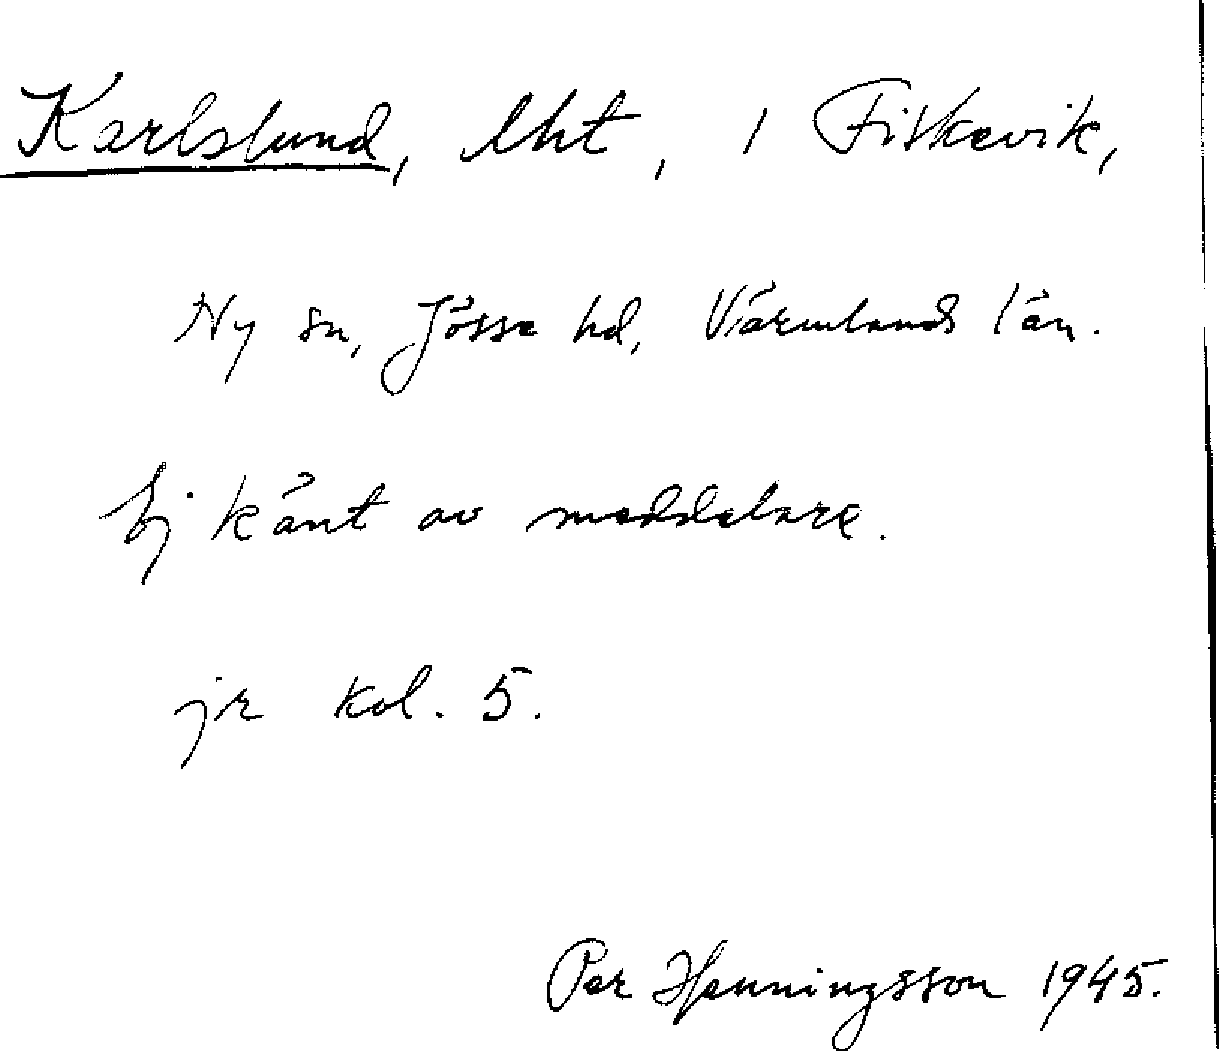 Karlslund, lht, i Fiskevik,
Ny sn, Jösse hd, Värmlands län.
Ej känt av meddelare.
jr kol. 5.
Per Henningsson 1945.